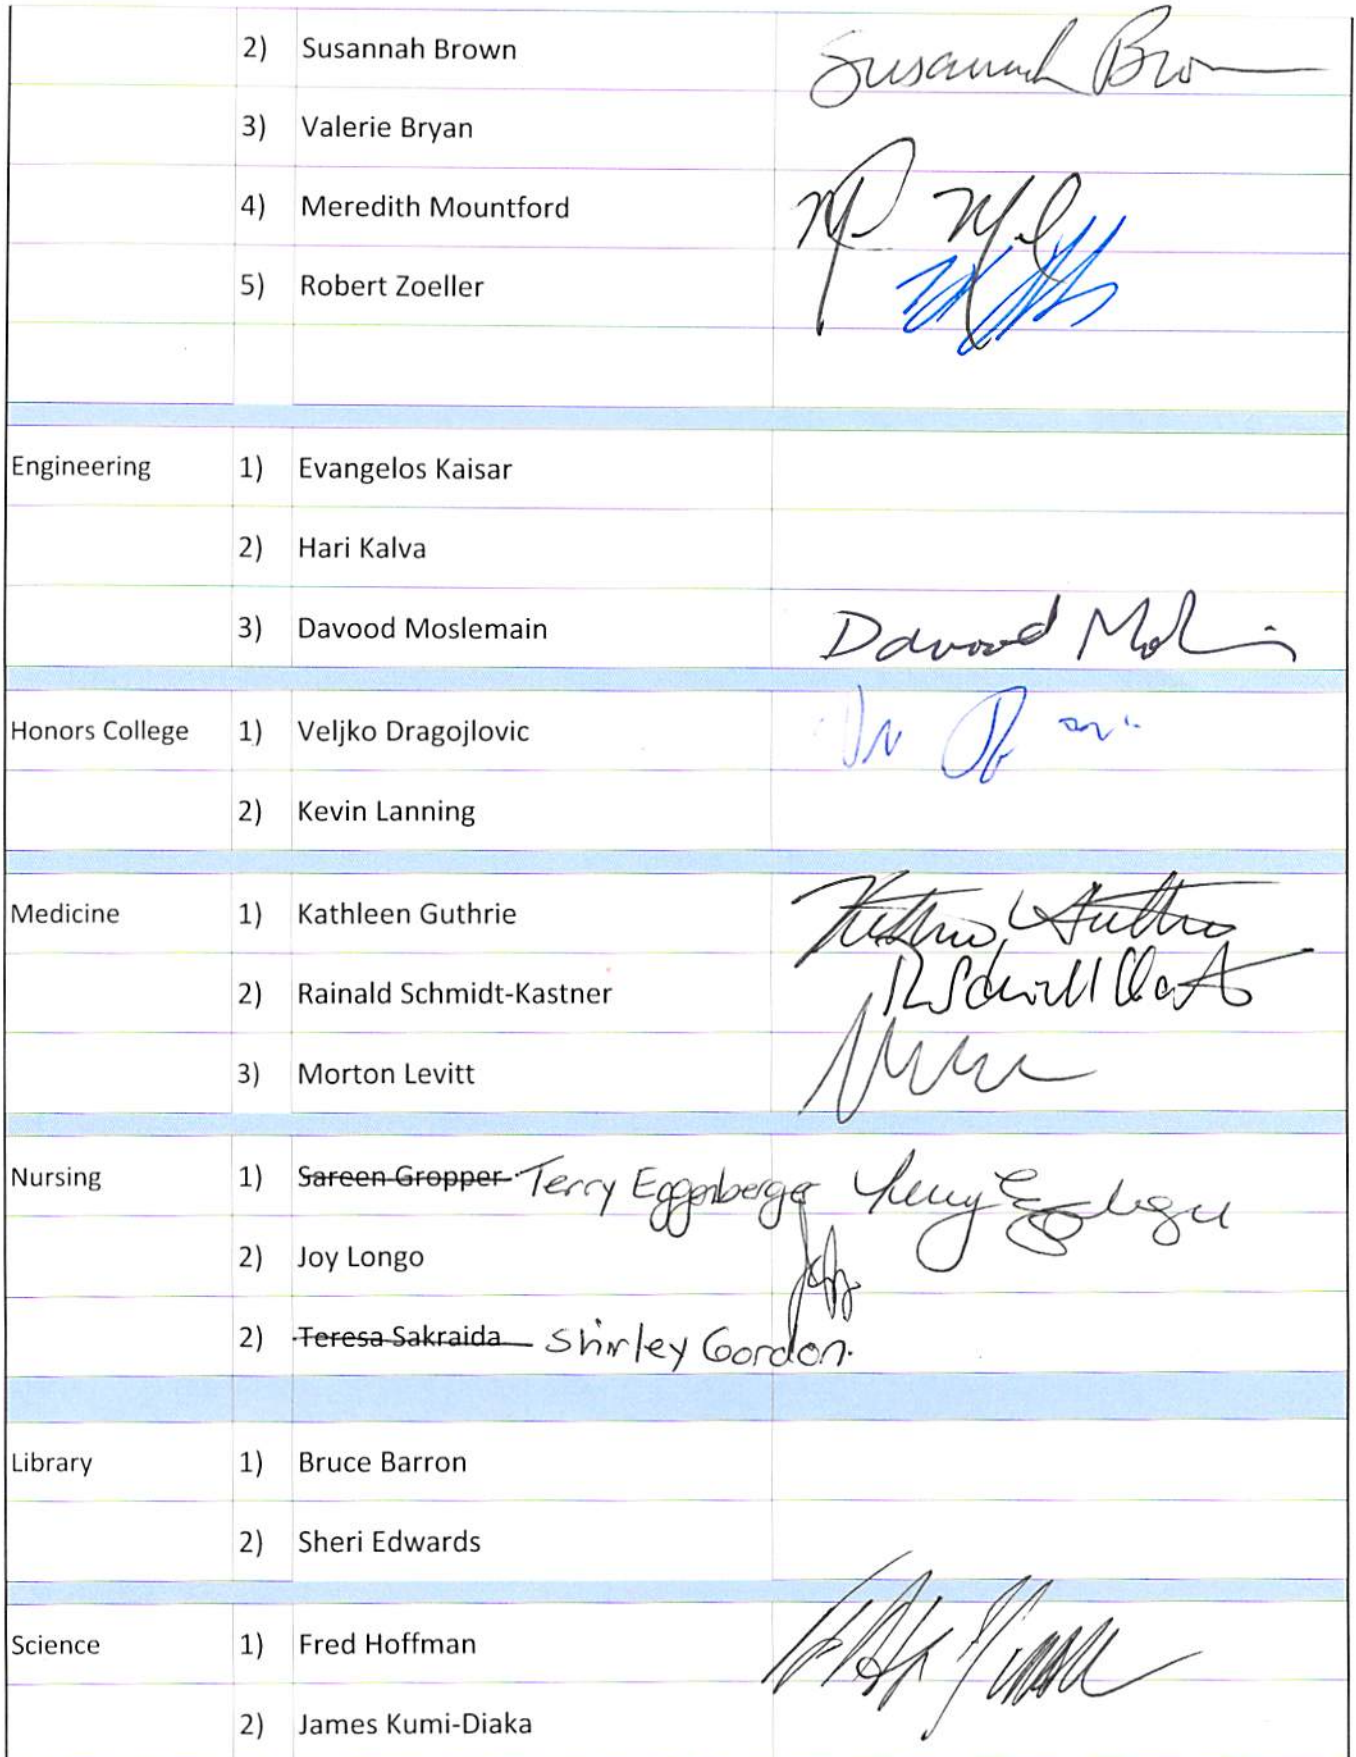 2) Susannah Brown Susannah Brown
3) Valerie Bryan
4) Meredith Mountford
5) Robert Zoeller
Engineering 1) Evangelos Kaisar
2) Hari Kalva
3) Davood Moslemain Davood
Honors College 1) Veljko Dragojlovic
2) Kevin Lanning
Medicine 1) Kathleen Guthrie
2) Rainald Schmidt-Kastner
3) Morton Levitt
Nursing 1) Sareen Gropper Terry Eggenberger
2) Joy Longo
2) Teresa Sakraida Shirley Gordon.
Library 1) Bruce Barron
2) Sheri Edwards
Science 1) Fred Hoffman
2) James Kumi-Diaka